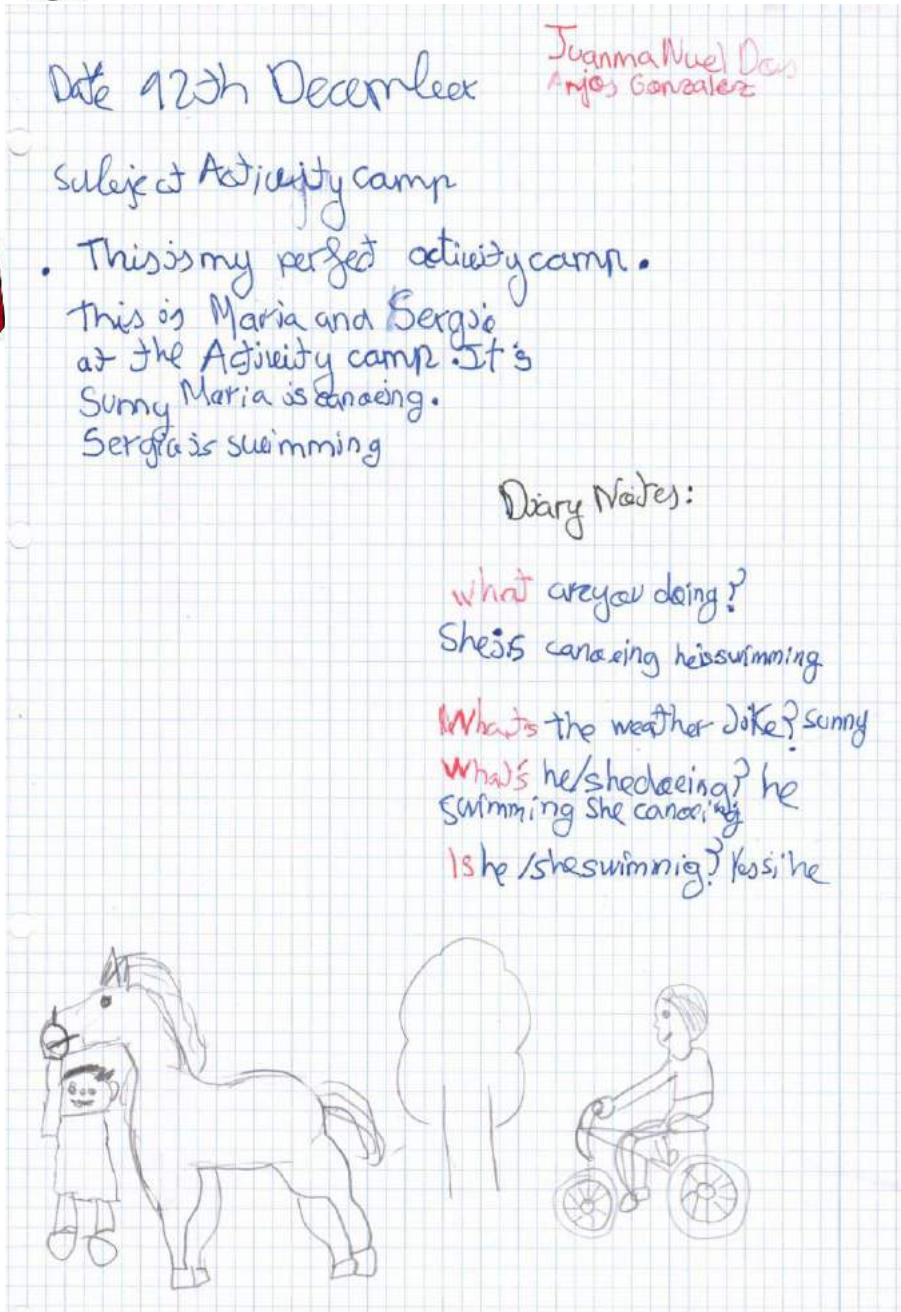 Juanma Nuel Dos
Anjos Gonzalez
Date 12th December
Subject Activity camp
. This is my perfect activity camp.
This is Maria and Sergio
at the Activity camp. It's
Sunny Maria is canoeing.
Sergio is swimming
Diary Notes:
What are you doing?
She is canoeing he is swimming
What's the weather like? sunny
What's he/she doeing? he
swimming she canoeing
Is he/she swimmig? Yes si he